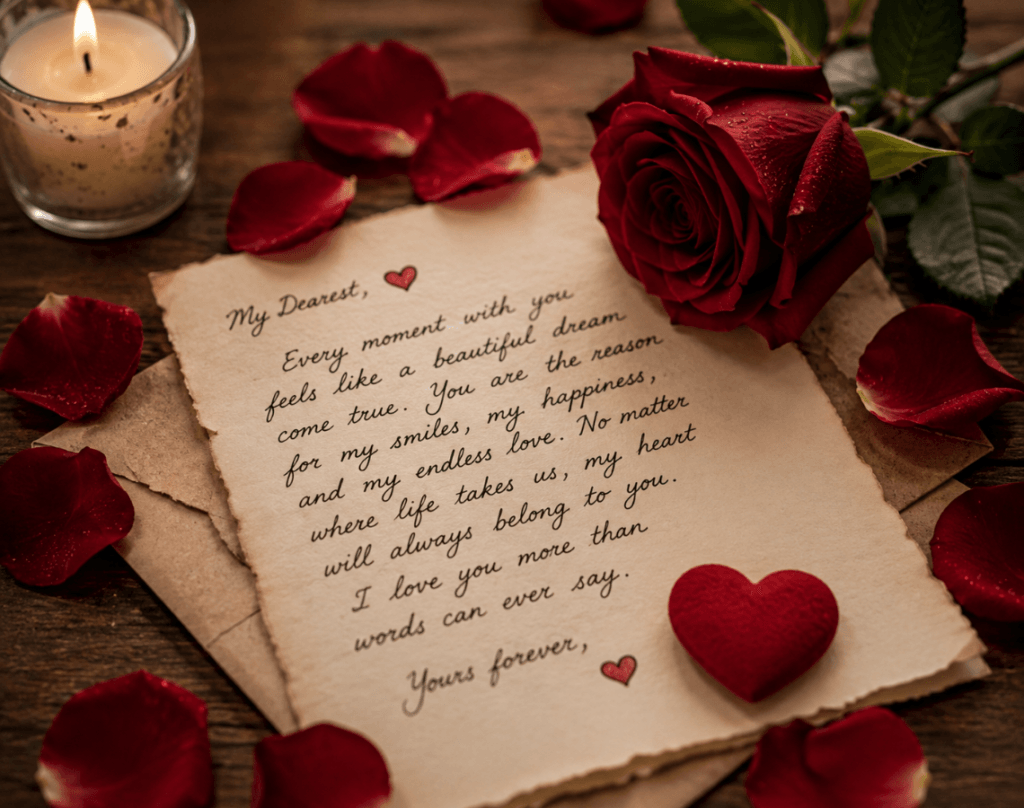 My Dearest,
Every moment with you
feels like a beautiful dream
come true. You are the reason
for my smiles, my happiness,
and my endless love. No matter
where life takes us, my heart
will always belong to you.
I love you more than
words can ever say.
Yours forever,